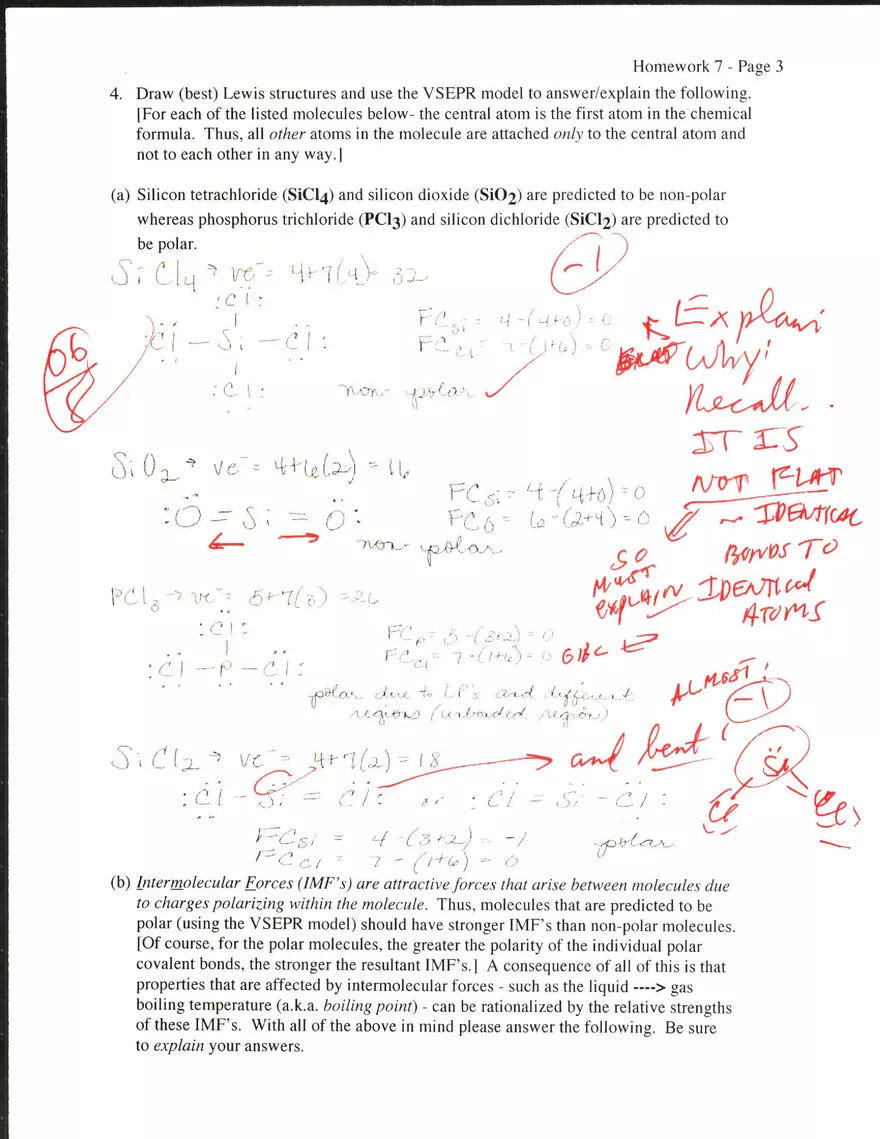 Homework 7 - Page 3
4. Draw (best) Lewis structures and use the VSEPR model to answer/explain the following.
[For each of the listed molecules below- the central atom is the first atom in the chemical
formula. Thus, all other atoms in the molecule are attached only to the central atom and
not to each other in any way.]
(a) Silicon tetrachloride (SiCl4) and silicon dioxide (SiO2) are predicted to be non-polar
whereas phosphorus trichloride (PCl3) and silicon dichloride (SiCl2) are predicted to
be polar.
-1
SiCl4 → ve⁻ = 4+7(4) = 32
:Cl:
:Cl — Si — Cl:
:Cl:
FCSi = 4-(4+0) = 0
FCCl = 7-(1+6) = 0
non-polar
06/8
Explain
Why!
Recall..
IT IS
NOT FLAT
~ IDENTICAL
BONDS TO
IDENTICAL
ATOMS
SiO2 → ve⁻ = 4+6(2) = 16
:O = Si = O:
FCSi = 4-(4+0) = 0
FCO = 6-(2+4) = 0
non-polar
SO
MUST
EXPLAIN
PCl3 → ve⁻ = 5+7(3) = 26
:Cl:
:Cl — P — Cl:
FCP = 5-(3+2) = 0
FCCl = 7-(1+6) = 0
polar due to LP's and different
regions (unbonded region)
ALMOST!
-1
SiCl2 → ve⁻ = 4+7(2) = 18
→ and bent!
:Cl - Si = Cl: or :Cl = Si - Cl:
Si
Cl Cl
FCSi = 4-(3+2) = -1
FCCl = 7-(1+6) = 0
polar
(b) Intermolecular Forces (IMF's) are attractive forces that arise between molecules due
to charges polarizing within the molecule. Thus, molecules that are predicted to be
polar (using the VSEPR model) should have stronger IMF's than non-polar molecules.
[Of course, for the polar molecules, the greater the polarity of the individual polar
covalent bonds, the stronger the resultant IMF's.] A consequence of all of this is that
properties that are affected by intermolecular forces - such as the liquid ----> gas
boiling temperature (a.k.a. boiling point) - can be rationalized by the relative strengths
of these IMF's. With all of the above in mind please answer the following. Be sure
to explain your answers.